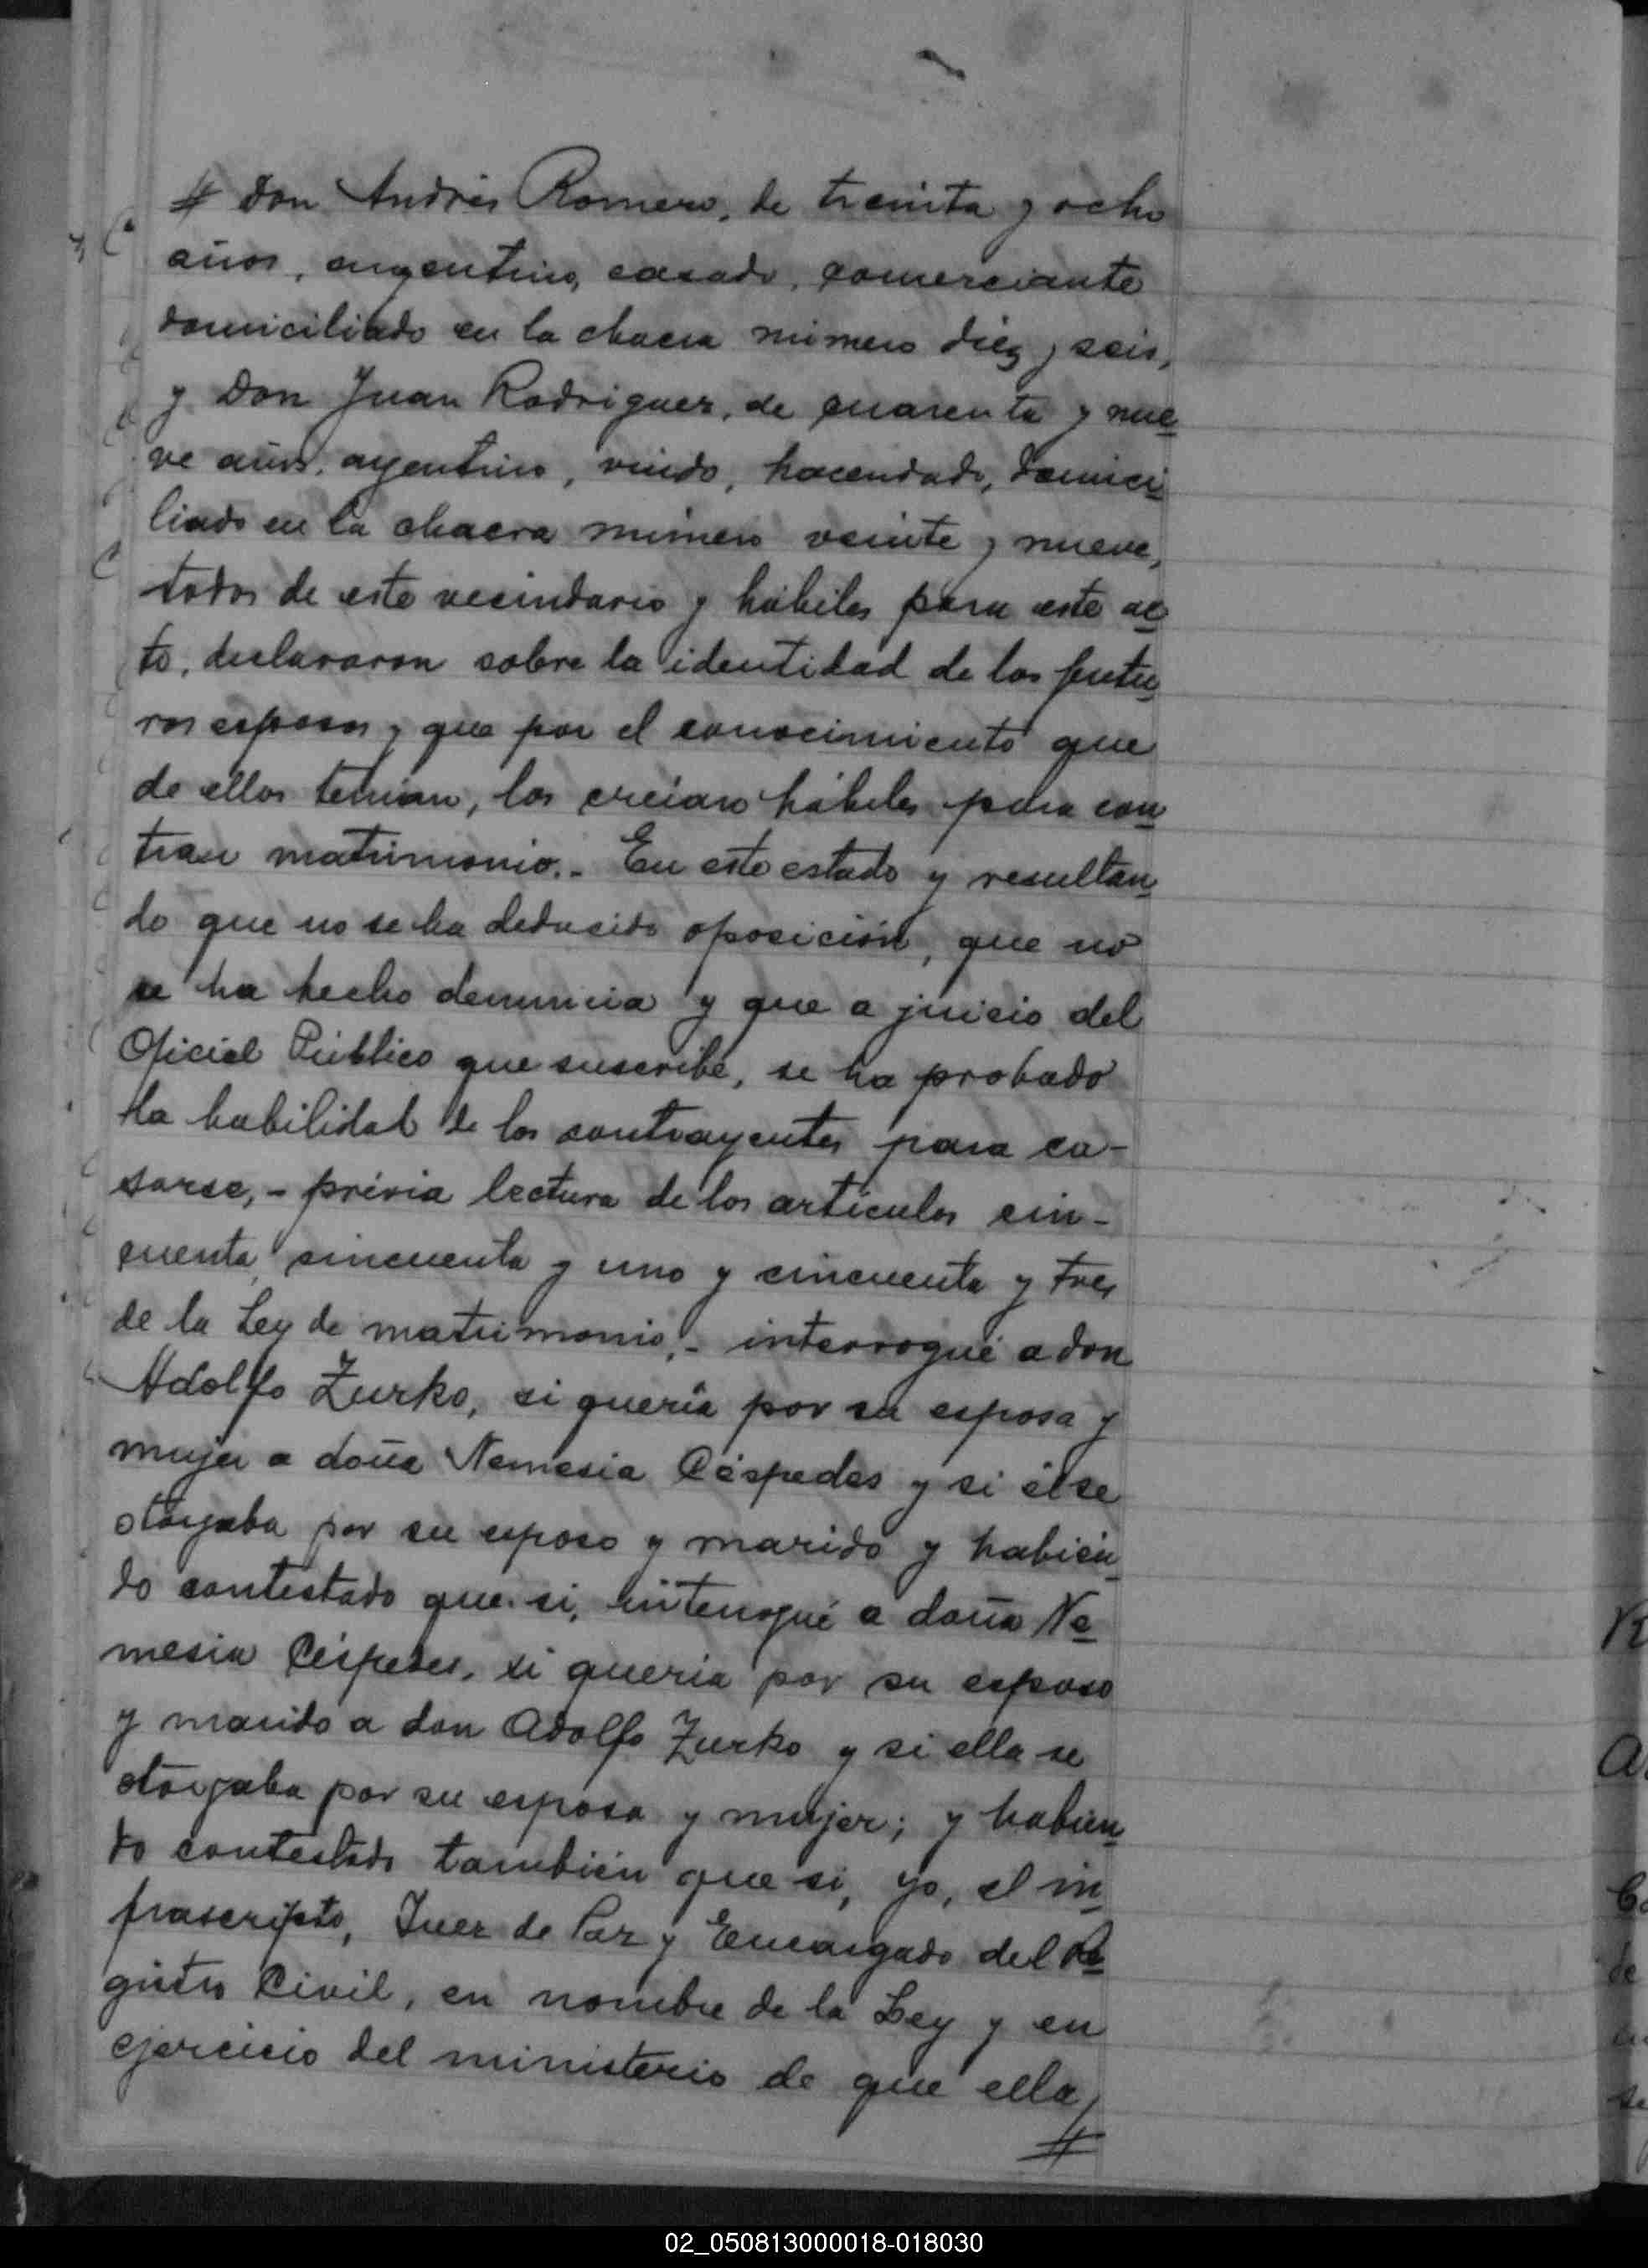 # Don Andrés Romero, de treinta y ocho
años, argentino, casado, comerciante
domiciliado en la chacra número diez y seis,
y Don Juan Rodriguez, de cuarenta y nue
ve años, argentino, viudo, hacendado, domici
liado en la chacra número veinte y nueve,
todos de este vecindario y hábiles para este ac
to, declararon sobre la identidad de los futu
ros esposos y que por el conocimiento que
de ellos tenían, los creían hábiles para con
traer matrimonio.- En este estado y resultan
do que no se ha deducido oposición, que no
se ha hecho denuncia y que a juicio del
Oficial Público que suscribe, se ha probado
la habilidad de los contrayentes para ca-
sarse,- prévia lectura de los artículos cin-
cuenta, cincuenta y uno y cincuenta y tres
de la Ley de matrimonio,- interrogué a don
Adolfo Zurko, si quería por su esposa y
mujer a doña Nemesia Céspedes y si él se
otorgaba por su esposo y marido y habien
do contestado que si, interrogué a doña Ne
mesia Céspedes, si quería por su esposo
y marido a don Adolfo Zurko y si ella se
otorgaba por su esposa y mujer; y habien
do contestado también que si, yo, el in
frascripto, Juez de Paz y Encargado del Re
gistro Civil, en nombre de la Ley y en
ejercicio del ministerio de que ella
#
02_050813000018-018030